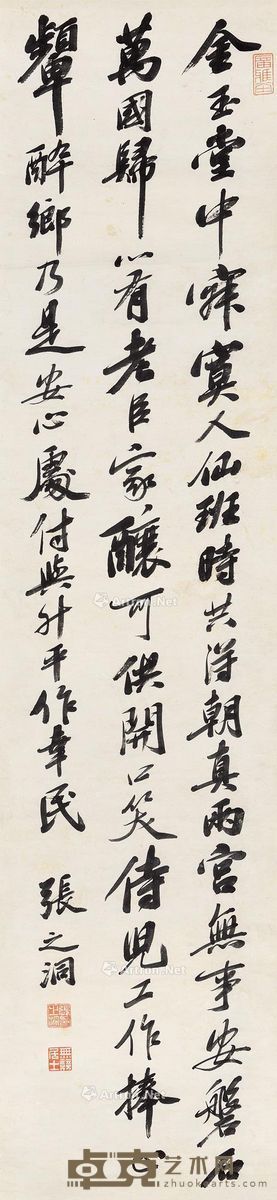 金玉堂中寂寞人仙班時共得朝真兩宮無事安磐石
萬國歸心有老臣家釀可供開口笑侍兒工作捧心
顰醉鄉乃是安心處付與升平作幸民
張之洞
無競居士
Artron.Net
卓克艺术网
www.zhuokearts.com